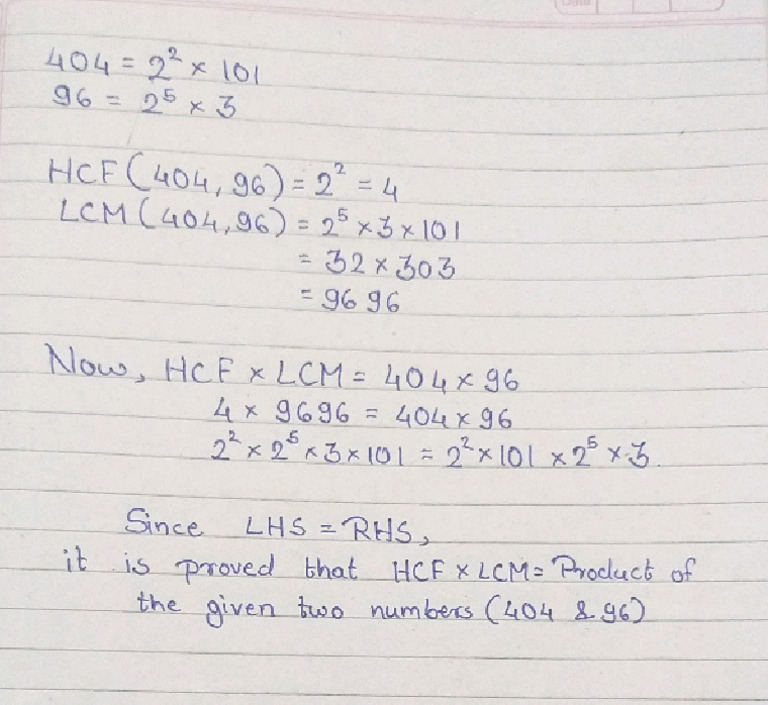 404 = 2² × 101
96 = 2⁵ × 3
HCF(404, 96) = 2² = 4
LCM(404,96) = 2⁵ × 3 × 101
= 32 × 303
= 9696
Now, HCF × LCM = 404 × 96
4 × 9696 = 404 × 96
2² × 2⁵ × 3 × 101 = 2² × 101 × 2⁵ × 3.
Since LHS = RHS,
it is proved that HCF × LCM = Product of
the given two numbers (404 & 96)